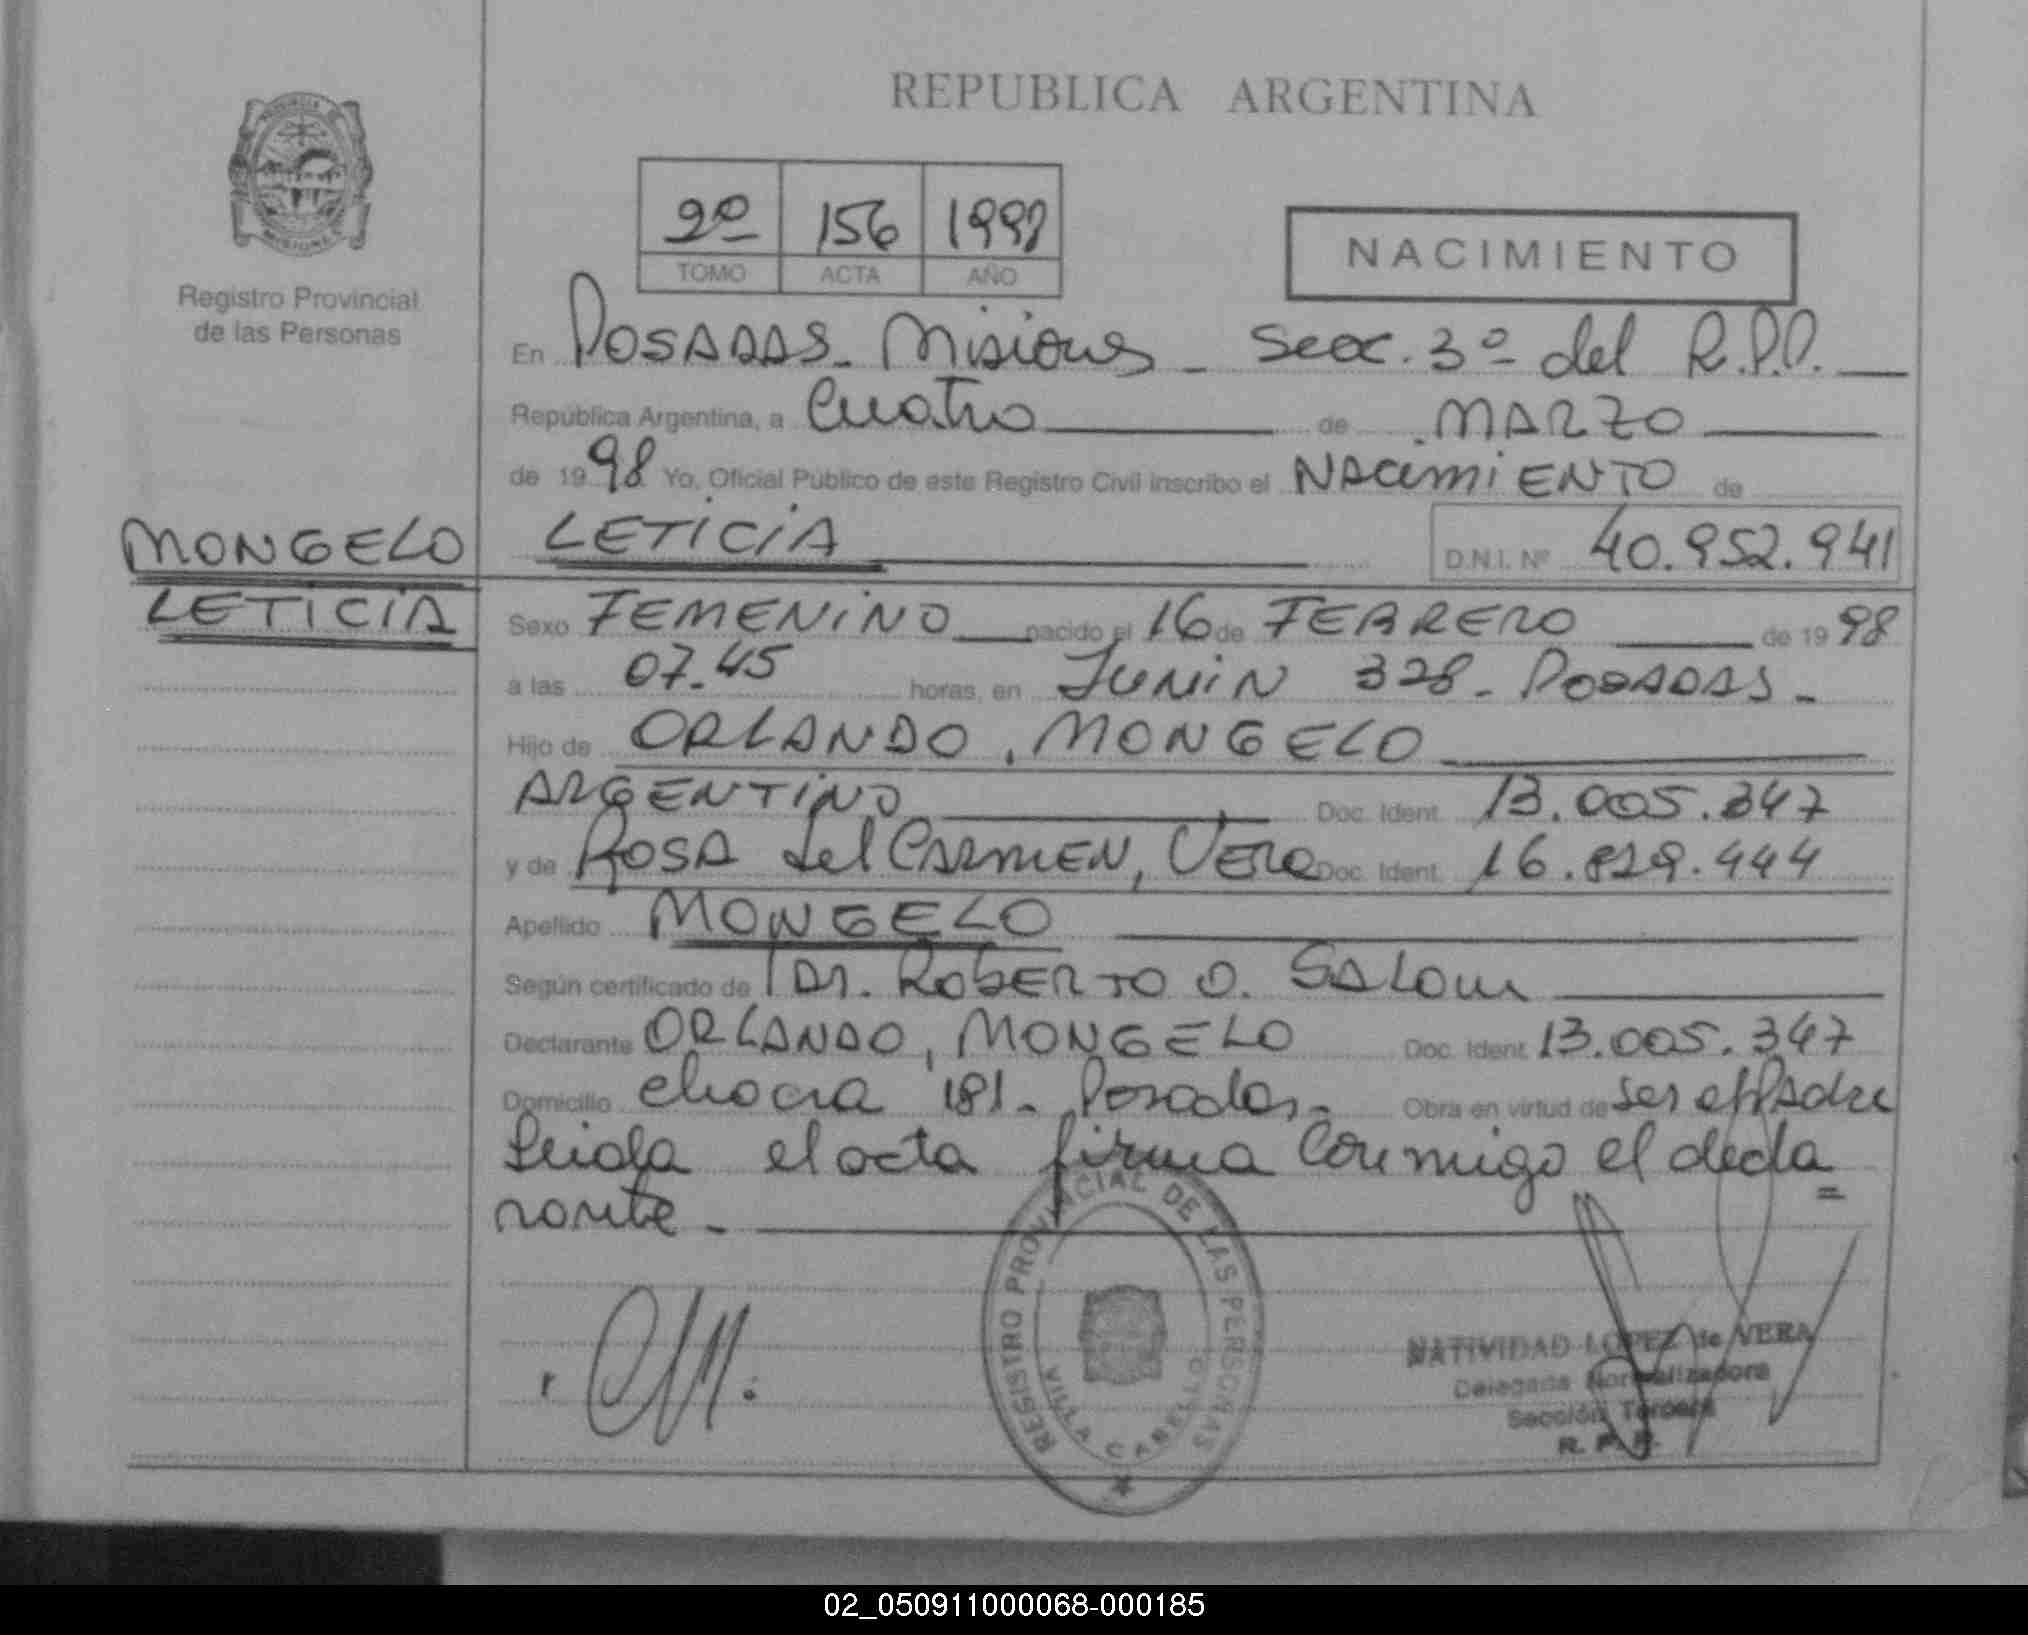 REPUBLICA ARGENTINA
2º 156 1998
TOMO ACTA AÑO
NACIMIENTO
Registro Provincial
de las Personas
En POSADAS - Misiones - Secc. 3º del R.P.P.
República Argentina, a Cuatro de MARZO
de 1998 Yo, Oficial Público de este Registro Civil inscribo el NACIMIENTO de
MONGELO
LETICIA
LETICIA D.N.I. Nº 40.952.941
Sexo FEMENINO nacido el 16 de FEBRERO de 1998
a las 07.45 horas, en JUNIN 328 - POSADAS -
Hijo de ORLANDO, MONGELO
ARGENTINO Doc. Ident. 13.005.347
y de ROSA del CARMEN, VERA Doc. Ident. 16.829.444
Apellido MONGELO
Según certificado de Dr. ROBERTO O. SALOM
Declarante ORLANDO, MONGELO Doc. Ident. 13.005.347
Domicilio Chacra 181 - Posadas - Obra en virtud de ser el Padre
Leida el acta firma Conmigo el decla=
rante -
REGISTRO PROVINCIAL DE LAS PERSONAS
VILLA CABELLO
NATIVIDAD LOPEZ de VERA
Delegada Normalizadora
Sección Tercera
R. P. P.
02_050911000068-000185